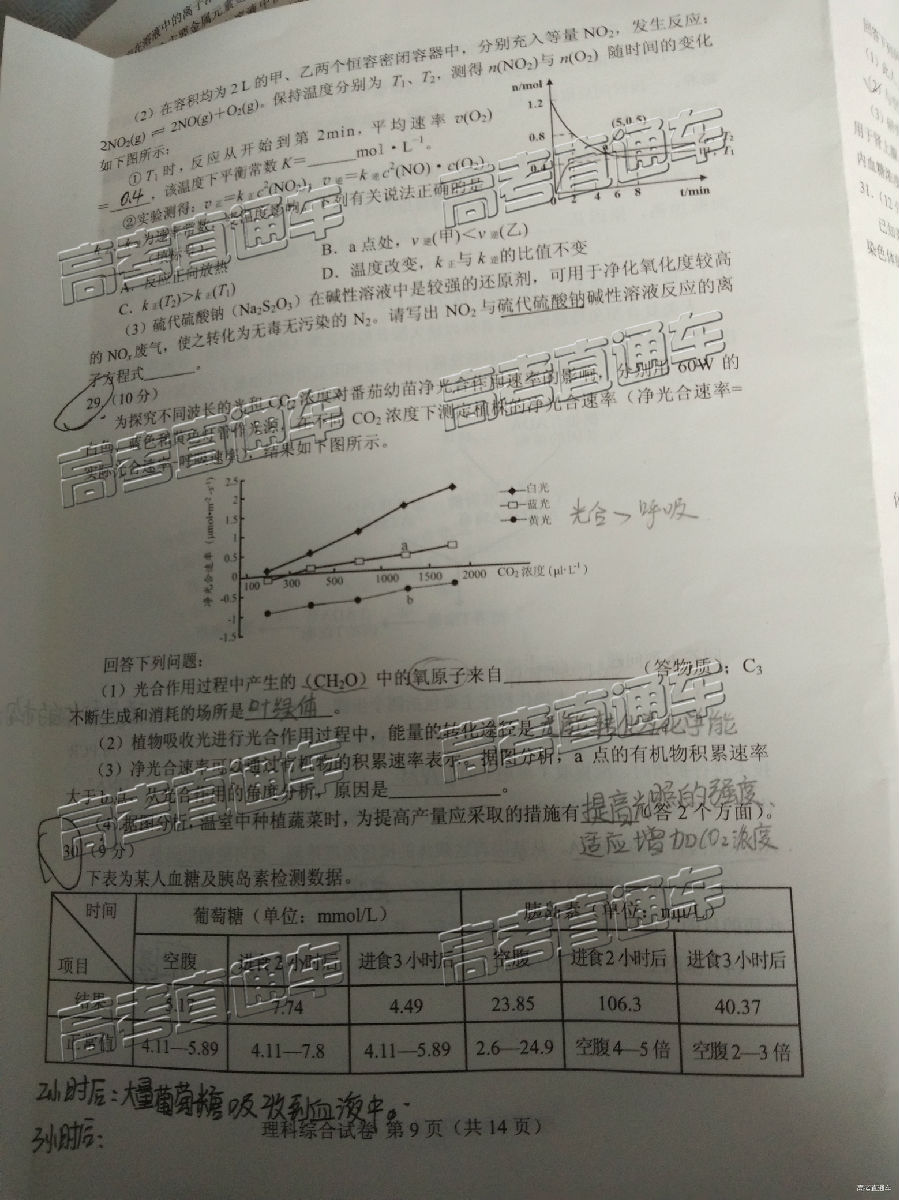 (2) 在容积均为 2 L 的甲、乙两个恒容密闭容器中，分别充入等量 NO₂，发生反应：
2NO₂(g) ⇌ 2NO(g)+O₂(g)。保持温度分别为 T₁、T₂，测得 n(NO₂)与 n(O₂) 随时间的变化
如下图所示：
① T₁ 时，反应从开始到第 2min，平均速率 v(O₂)
= 0.4 ，该温度下平衡常数 K=______mol·L⁻¹。
②实验测得：v正=k正c²(NO₂)，v逆=k逆c²(NO)·c(O₂)
为速率常数，温度影响 下列有关说法正确的是
(填标号)
A．反应正向放热
B．a 点处，v逆(甲)＜v逆(乙)
C．k正(T₂)>k正(T₁)
D．温度改变，k正与 k逆的比值不变
n/mol
1.2
0.8
0.4
0 2 4 6 8
t/min
T₁
(3) 硫代硫酸钠（Na₂S₂O₃）在碱性溶液中是较强的还原剂，可用于净化氧化度较高
的 NOₓ废气，使之转化为无毒无污染的 N₂。请写出 NO₂与硫代硫酸钠碱性溶液反应的离
子方程式______。
29.（10 分）
为探究不同波长的光和 CO₂ 浓度对番茄幼苗净光合作用速率的影响，分别用 60W 的
白色、蓝色和黄色灯管作光源，在不同 CO₂ 浓度下测定植株的净光合速率（净光合速率=
实际光合速率-呼吸速率），结果如下图所示。
净光合速率（μmol·m⁻²·s⁻¹）
2.5
2
1.5
1
0.5
0
-0.5
-1
-1.5
100 300 500 1000 1500 2000 CO₂ 浓度 (μl·L⁻¹)
a
b
白光
蓝光
黄光
光合＞呼吸
回答下列问题：
(1) 光合作用过程中产生的 (CH₂O) 中的氧原子来自______________(答物质)；C₃
不断生成和消耗的场所是 叶绿体 。
(2) 植物吸收光进行光合作用过程中，能量的转化途径是 光能转化活化学能
(3) 净光合速率可以通过有机物的积累速率表示。据图分析，a 点的有机物积累速率
大于 b 点，从光合作用的角度分析，原因是____________。
(4) 据图分析，温室中种植蔬菜时，为提高产量应采取的措施有 (答 2 个方面)。
提高光照的强度、
适应增加CO₂浓度
30.（9 分）
下表为某人血糖及胰岛素检测数据。
时间
项目
葡萄糖（单位：mmol/L） 胰岛素（单位：mμ/L）
空腹 进食 2 小时后 进食 3 小时后 空腹 进食 2 小时后 进食 3 小时后
结果 5.17 7.74 4.49 23.85 106.3 40.37
正常值 4.11—5.89 4.11—7.8 4.11—5.89 2.6—24.9 空腹 4—5 倍 空腹 2—3 倍
2小时后：大量葡萄糖吸收到血液中。
3小时后：
理科综合试卷 第 9 页（共 14 页）
高考直通车
高考直通车
高考直通车
高考直通车
高考直通车
高考直通车
高考直通车
高考直通车